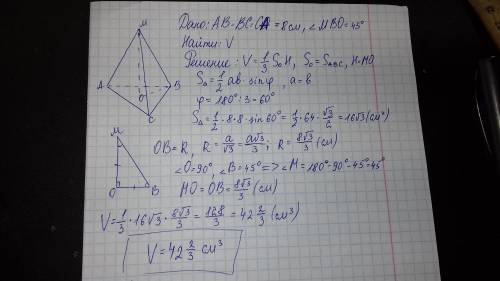 Дано: AB=BC=CA=8см, ∠MBO=45°
Найти: V
Решение: V=1/3 S₀H, S₀=S_ABC, H=MO
S_Δ=1/2 ab·sinφ, a=b
φ=180°:3=60°
S_Δ=1/2·8·8·sin60°=1/2·64·√3/2=16√3(см²)
M
A
B
O
C
OB=R, R=a/√3=a√3/3; R=8√3/3(см)
∠O=90°, ∠B=45° => ∠M=180°-90°-45°=45°
MO=OB=8√3/3(см)
M
O
B
V=1/3·16√3·8√3/3=128/3=42 2/3(см³)
V=42 2/3 см³